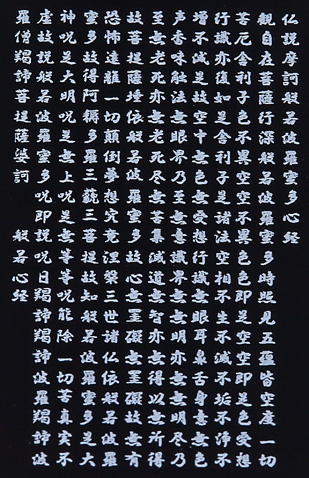 仏説摩訶般若波羅蜜多心経
観自在菩薩行深般若波羅蜜多時照見五蘊皆空度一切
苦厄舎利子色不異空空不異色色即是空空即是色受想
行識亦復如是舎利子是諸法空相不生不滅不垢不浄不
増不減是故空中無色無受想行識無眼耳鼻舌身意無色
声香味触法無眼界乃至無意識界無無明亦無無明尽乃
至無老死亦無老死尽無苦集滅道無智亦無得以無所得
故菩提薩埵依般若波羅蜜多故心無罣礙無罣礙故無有
恐怖遠離一切顛倒夢想究竟涅槃三世諸仏依般若波羅
蜜多故得阿耨多羅三藐三菩提故知般若波羅蜜多是大
神呪是大明呪是無上呪是無等等呪能除一切苦真実不
虚故説般若波羅蜜多呪即説呪曰羯諦羯諦波羅羯諦波
羅僧羯諦菩提薩婆訶 般若心経